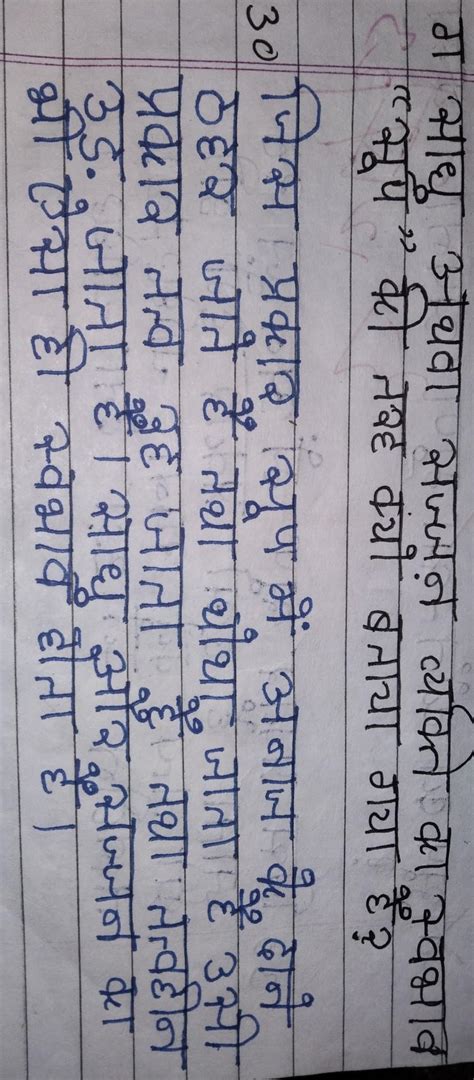 ग साधु अथवा सज्जन व्यक्ति का स्वभाव
“सूप” की तरह क्यों बताया गया है?
उ० जिस प्रकार सूप में अनाज के दाने
ठहर जाते है तथा थोथा जाता है उसी
प्रकार तत्व रह जाता है तथा तत्वहीन
उड़ जाता है। साधु और सज्जन का
भी ऐसा ही स्वभाव होता है।